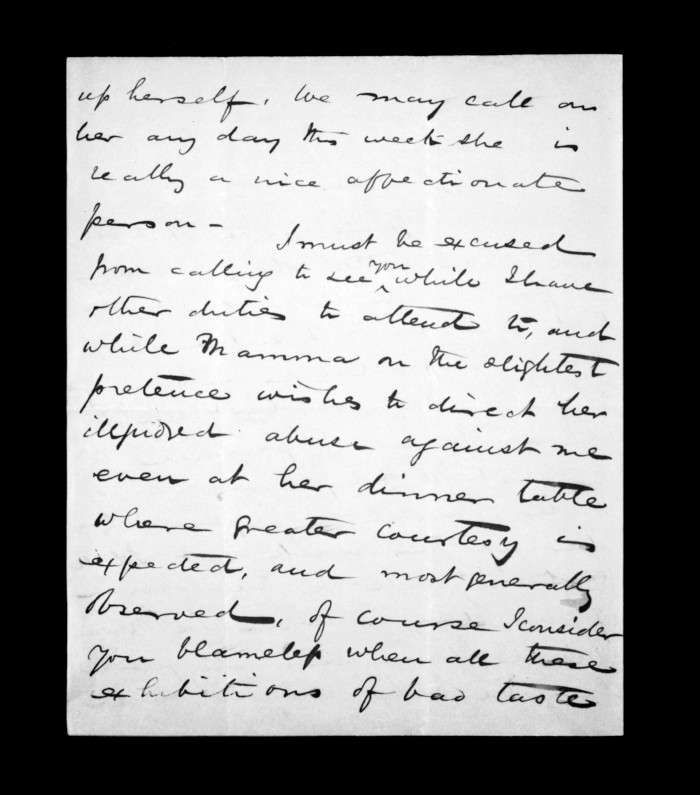 up herself. We may call on
her any day this week she is
really a nice affectionate
person -
I must be excused
from calling to see you while I have
other duties to attend to, and
while Mamma on the slightest
pretence wishes to direct her
abuse against me
even at her dinner table
where greater courtesy is
expected, and most generally
observed, of course I consider
you blameless when all these
exhibitions of bad taste